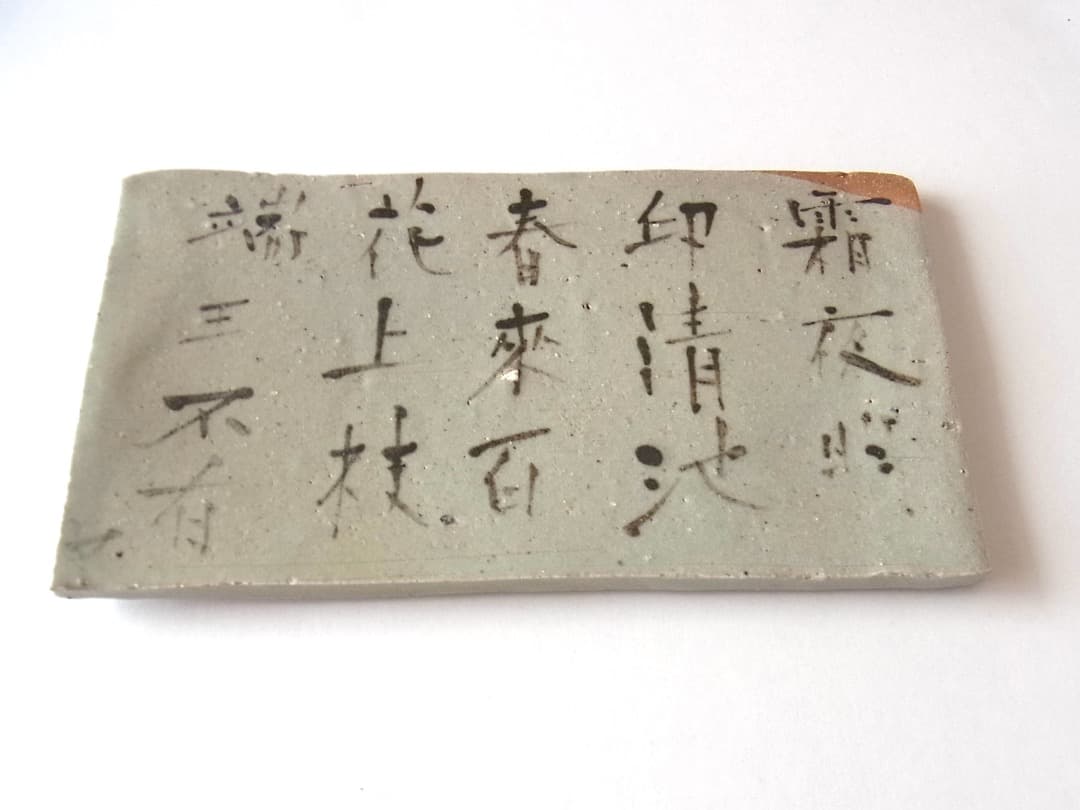 霜夜照
印清池
春來百
花上枝
端三不有